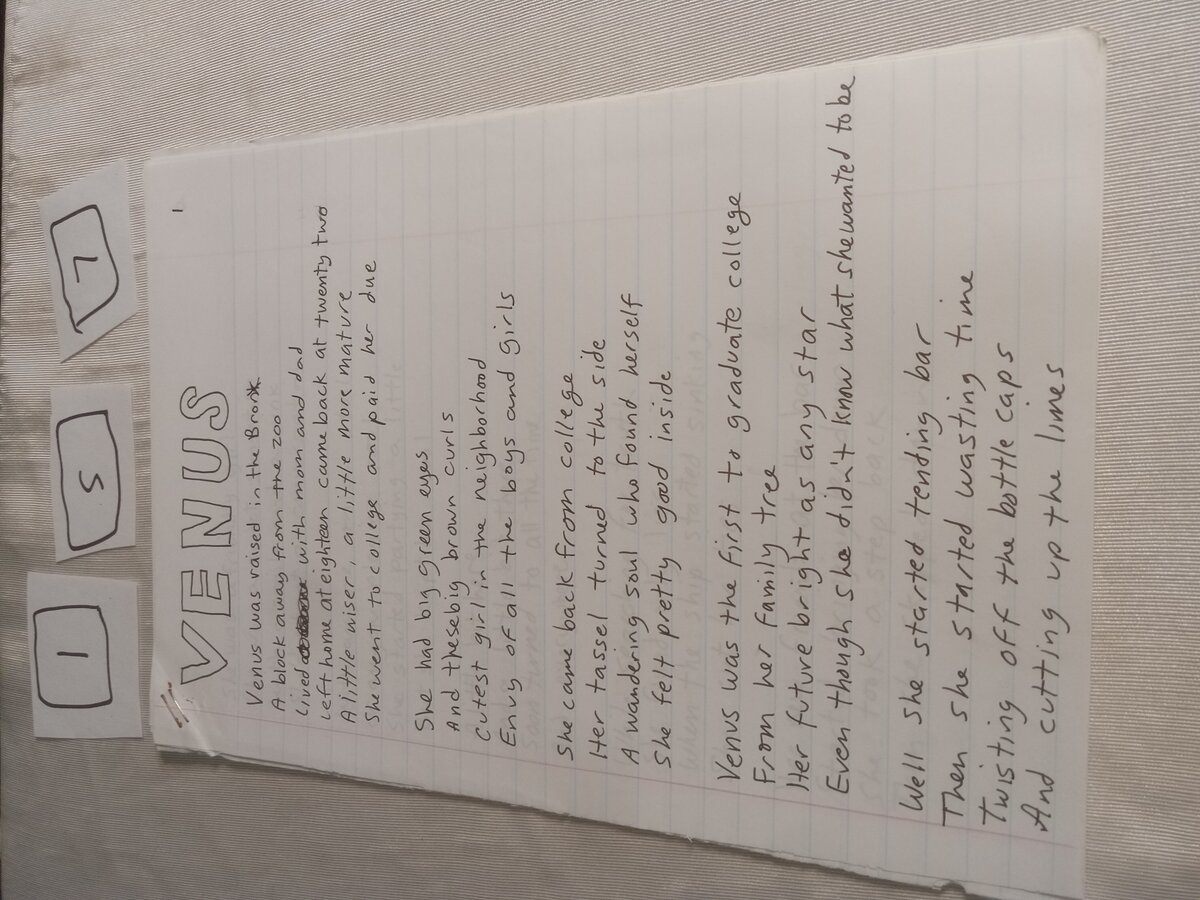 1
5
7
1
VENUS
Venus was raised in the Bronx
A block away from the zoo
Lived with mom and dad
Left home at eighteen came back at twenty two
A little wiser, a little more mature
She went to college and paid her due
She had big green eyes
And these big brown curls
Cutest girl in the neighborhood
Envy of all the boys and girls
She came back from college
Her tassel turned to the side
A wandering soul who found herself
She felt pretty good inside
Venus was the first to graduate college
From her family tree
Her future bright as any star
Even though she didn't know what she wanted to be
Well she started tending bar
Then she started wasting time
Twisting off the bottle caps
And cutting up the limes